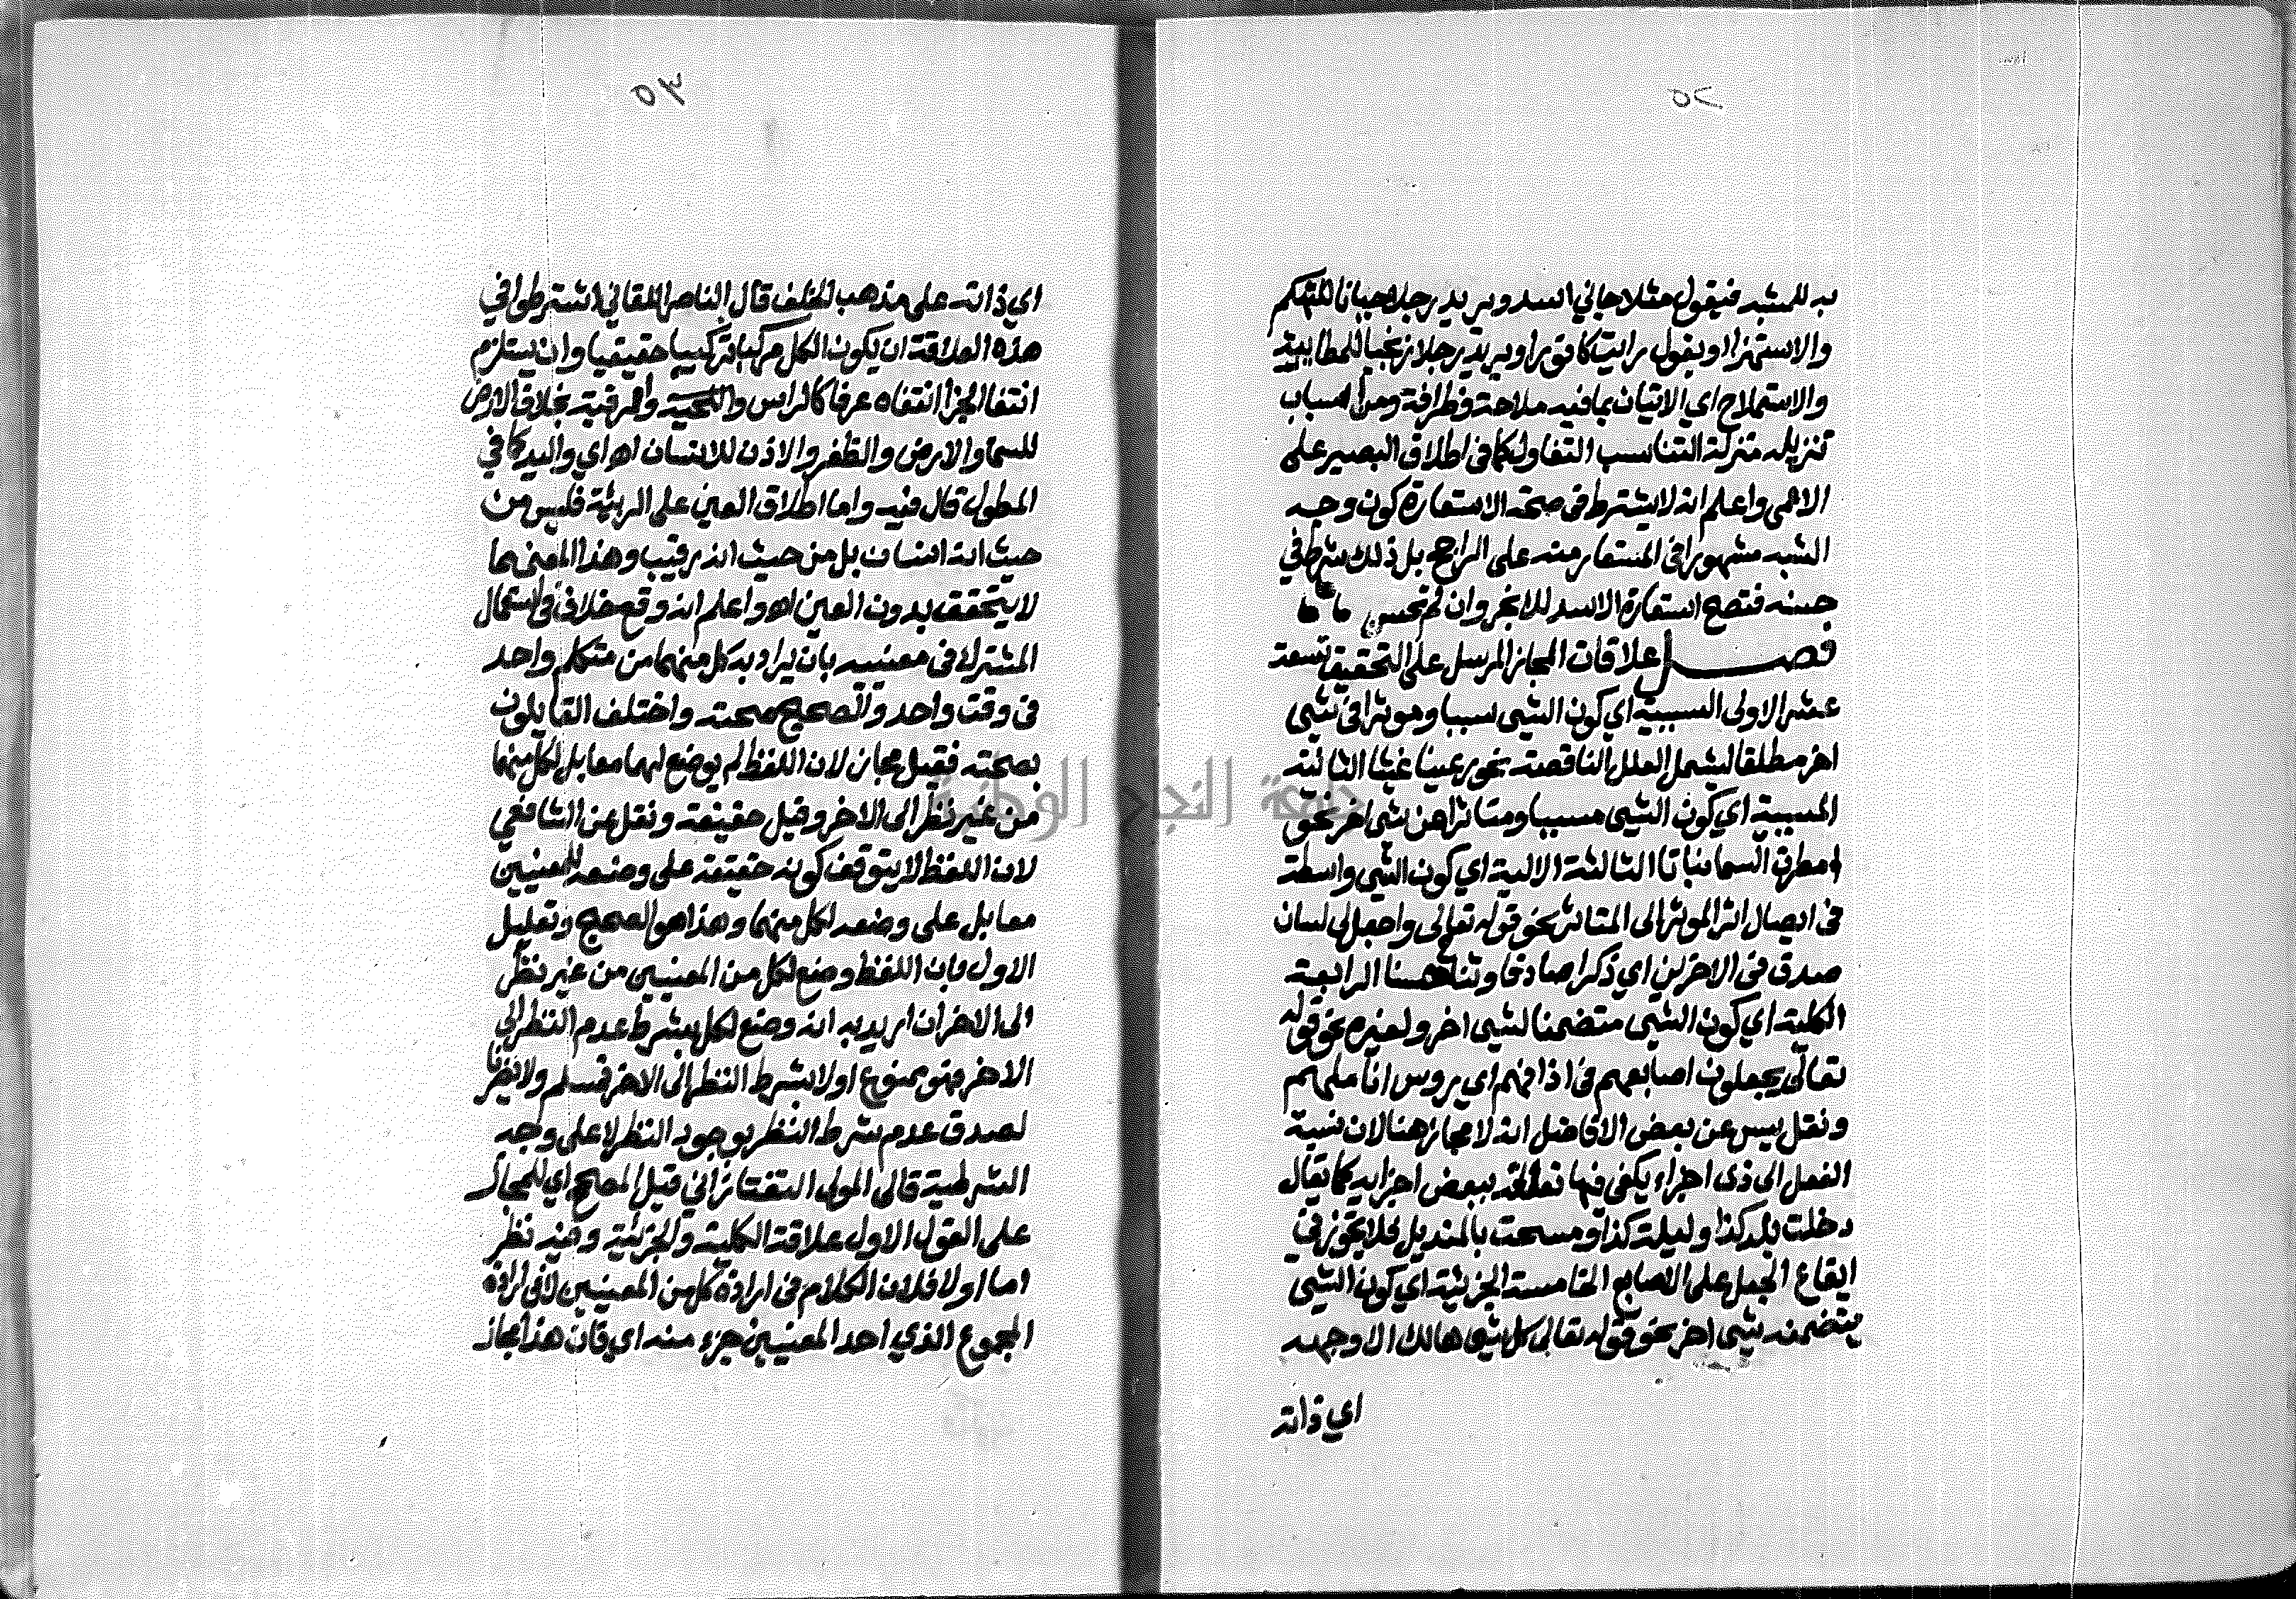 ٥٢
به للمشبه فيقول مثلا جاني اسد ويريد رجلا جبانا للتهكم
والاستهزا او يقول رايت كافورا ويريد رجلا زنجيا للمطايبة
والاستملاح اي الاتيان بما فيه ملاحة وظرافة ومن اسباب
تنزيله منزلة التناسب التفاول كما في اطلاق البصير على
الاعمى واعلم انه لا يشترط في صحة الاستعارة كون وجه
الشبه مشهورا في المستعار منه على الراجح بل ذلك شرط في
حسنه فتصح استعارة الاسد للابخر وان لم تحسن
فصل علاقات المجاز المرسل على التحقيق تسعة
عشر الاولى السببية اي كون الشي سببا وموثرا في شي
اخر مطلقا ليشمل العلل الناقصة نحو رعينا غيثا الثانية
المسببية اي كون الشي مسببا ومتاثرا عن شي اخر نحو
امطرت السما نباتا الثالثة الالية اي كون الشي واسطة
في ايصال اثر الموثر الى المتاثر نحو قوله تعالى واجعل لي لسان
صدق في الاخرين اي ذكرا صادقا وثنا حسنا الرابعة
الكلية اي كون الشي متضمنا لشي اخر ولغيره نحو قوله
تعالى يجعلون اصابعهم في اذانهم اي روس اناملهم
ونقل يس عن بعض الافاضل انه لا مجاز هنا لان نسبة
الفعل الى ذى اجزاء يكفي فيها تعلقه ببعض اجزايه كما يقال
دخلت بلد كذا وليلة كذا ومسحت بالمنديل فلا تجوز في
ايقاع الجعل على الاصابع الخامسة الجزئية اي كون الشي
يتضمنه شي اخر نحو قوله تعالى كل شي هالك الا وجهه
اي ذاته
٥٣
اي ذاته على مذهب الخلف قال الناصر اللقاني اشترطوا في
هذه العلاقة ان يكون الكل مركبا تركيبا حقيقيا وان يستلزم
انتفا الجزا انتفاه عرفا كالراس واللحية والرقبة بخلاف الارض
للسما والارض والظفر والاذن للانسان اه اي واليد كما في
المطول قال فيه واما اطلاق العين على الربيئة فليس من
حيث انه انسان بل من حيث انه رقيب وهذا المعنى مما
لا يتحقق بدون العين اه واعلم انه وقع خلاف في استعمال
المشترك في معنييه بان يراد به كل منهما من متكلم واحد
في وقت واحد والصحيح صحته واختلف القايلون
بصحته فقيل مجاز لان اللفظ لم يوضع لهما معا بل لكل منهما
من غير نظر الى الاخر وقيل حقيقة ونقل عن الشافعي
لان اللفظ لا يتوقف كونه حقيقة على وضعه للمعنيين
معا بل على وضعه لكل منهما وهذا هو الصحيح وتعليل
الاول بان اللفظ وضع لكل من المعنيين من غير نظر
الى الاخر ان اريد به انه وضع لكل بشرط عدم النظر الى
الاخر فهو ممنوع او لا بشرط النظر الى الاخر فمسلم ولا يضرنا
لصدق عدم شرط النظر بوجود النظر لا على وجه
الشرطية قال المولى التفتازاني قيل المصحح اي للمجاز
على القول الاول علاقة الكلية والجزئية وفيه نظر
اما اولا فلان الكلام في ارادة كل من المعنيين لا في ارادة
المجموع الذي احد المعنيين جزء منه اي فان هذا مجاز
جامعة النجاح الوطنية